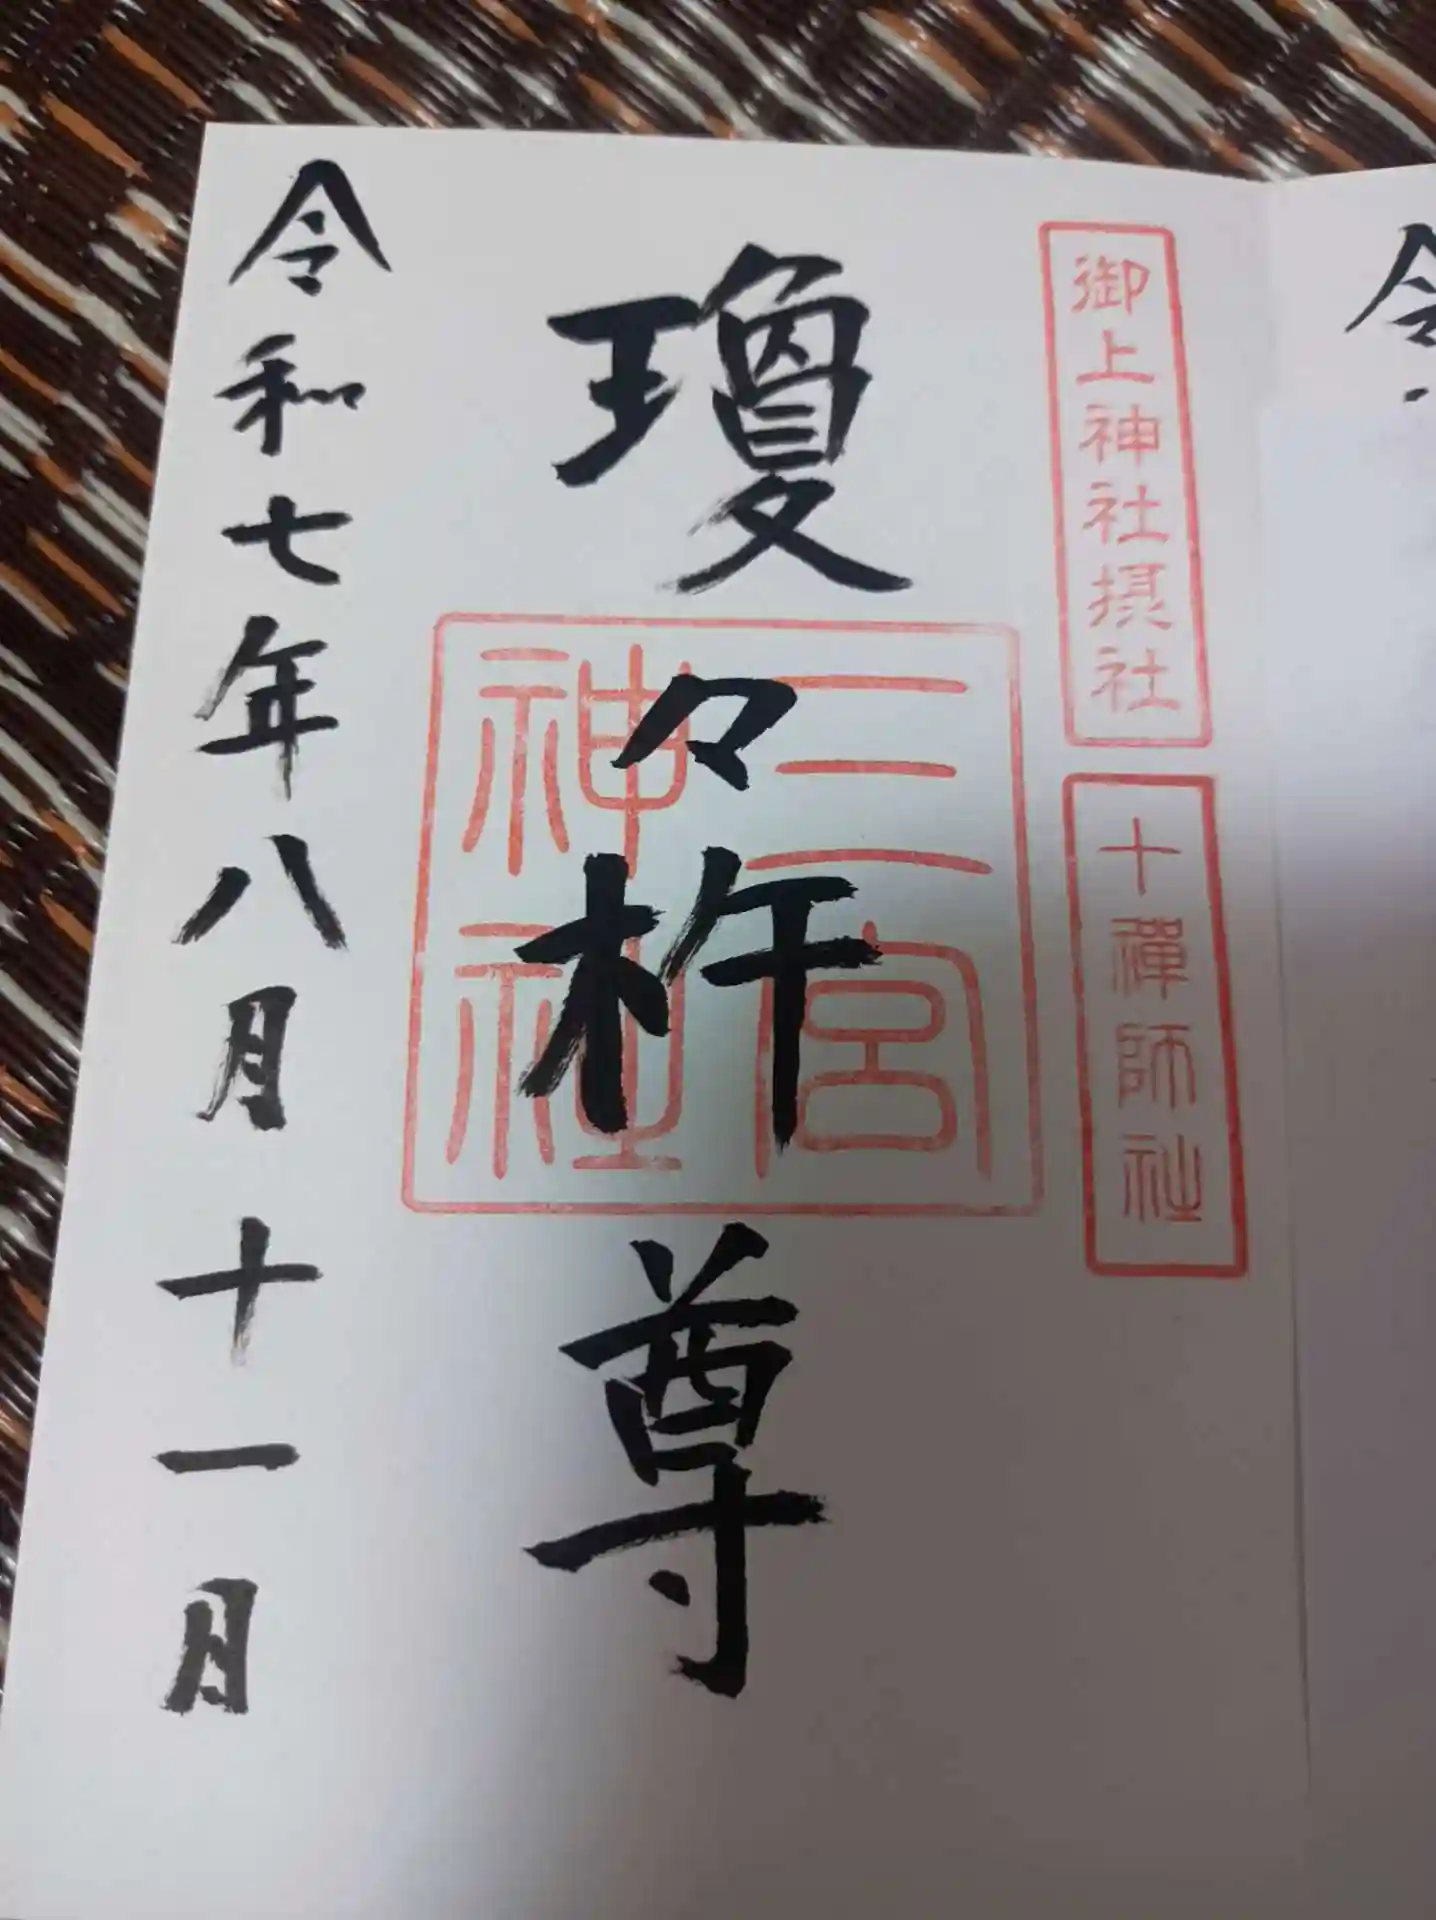 御上神社摂社
十禅師社
三宮
神社
瓊々杵尊
令和七年八月十一月
令